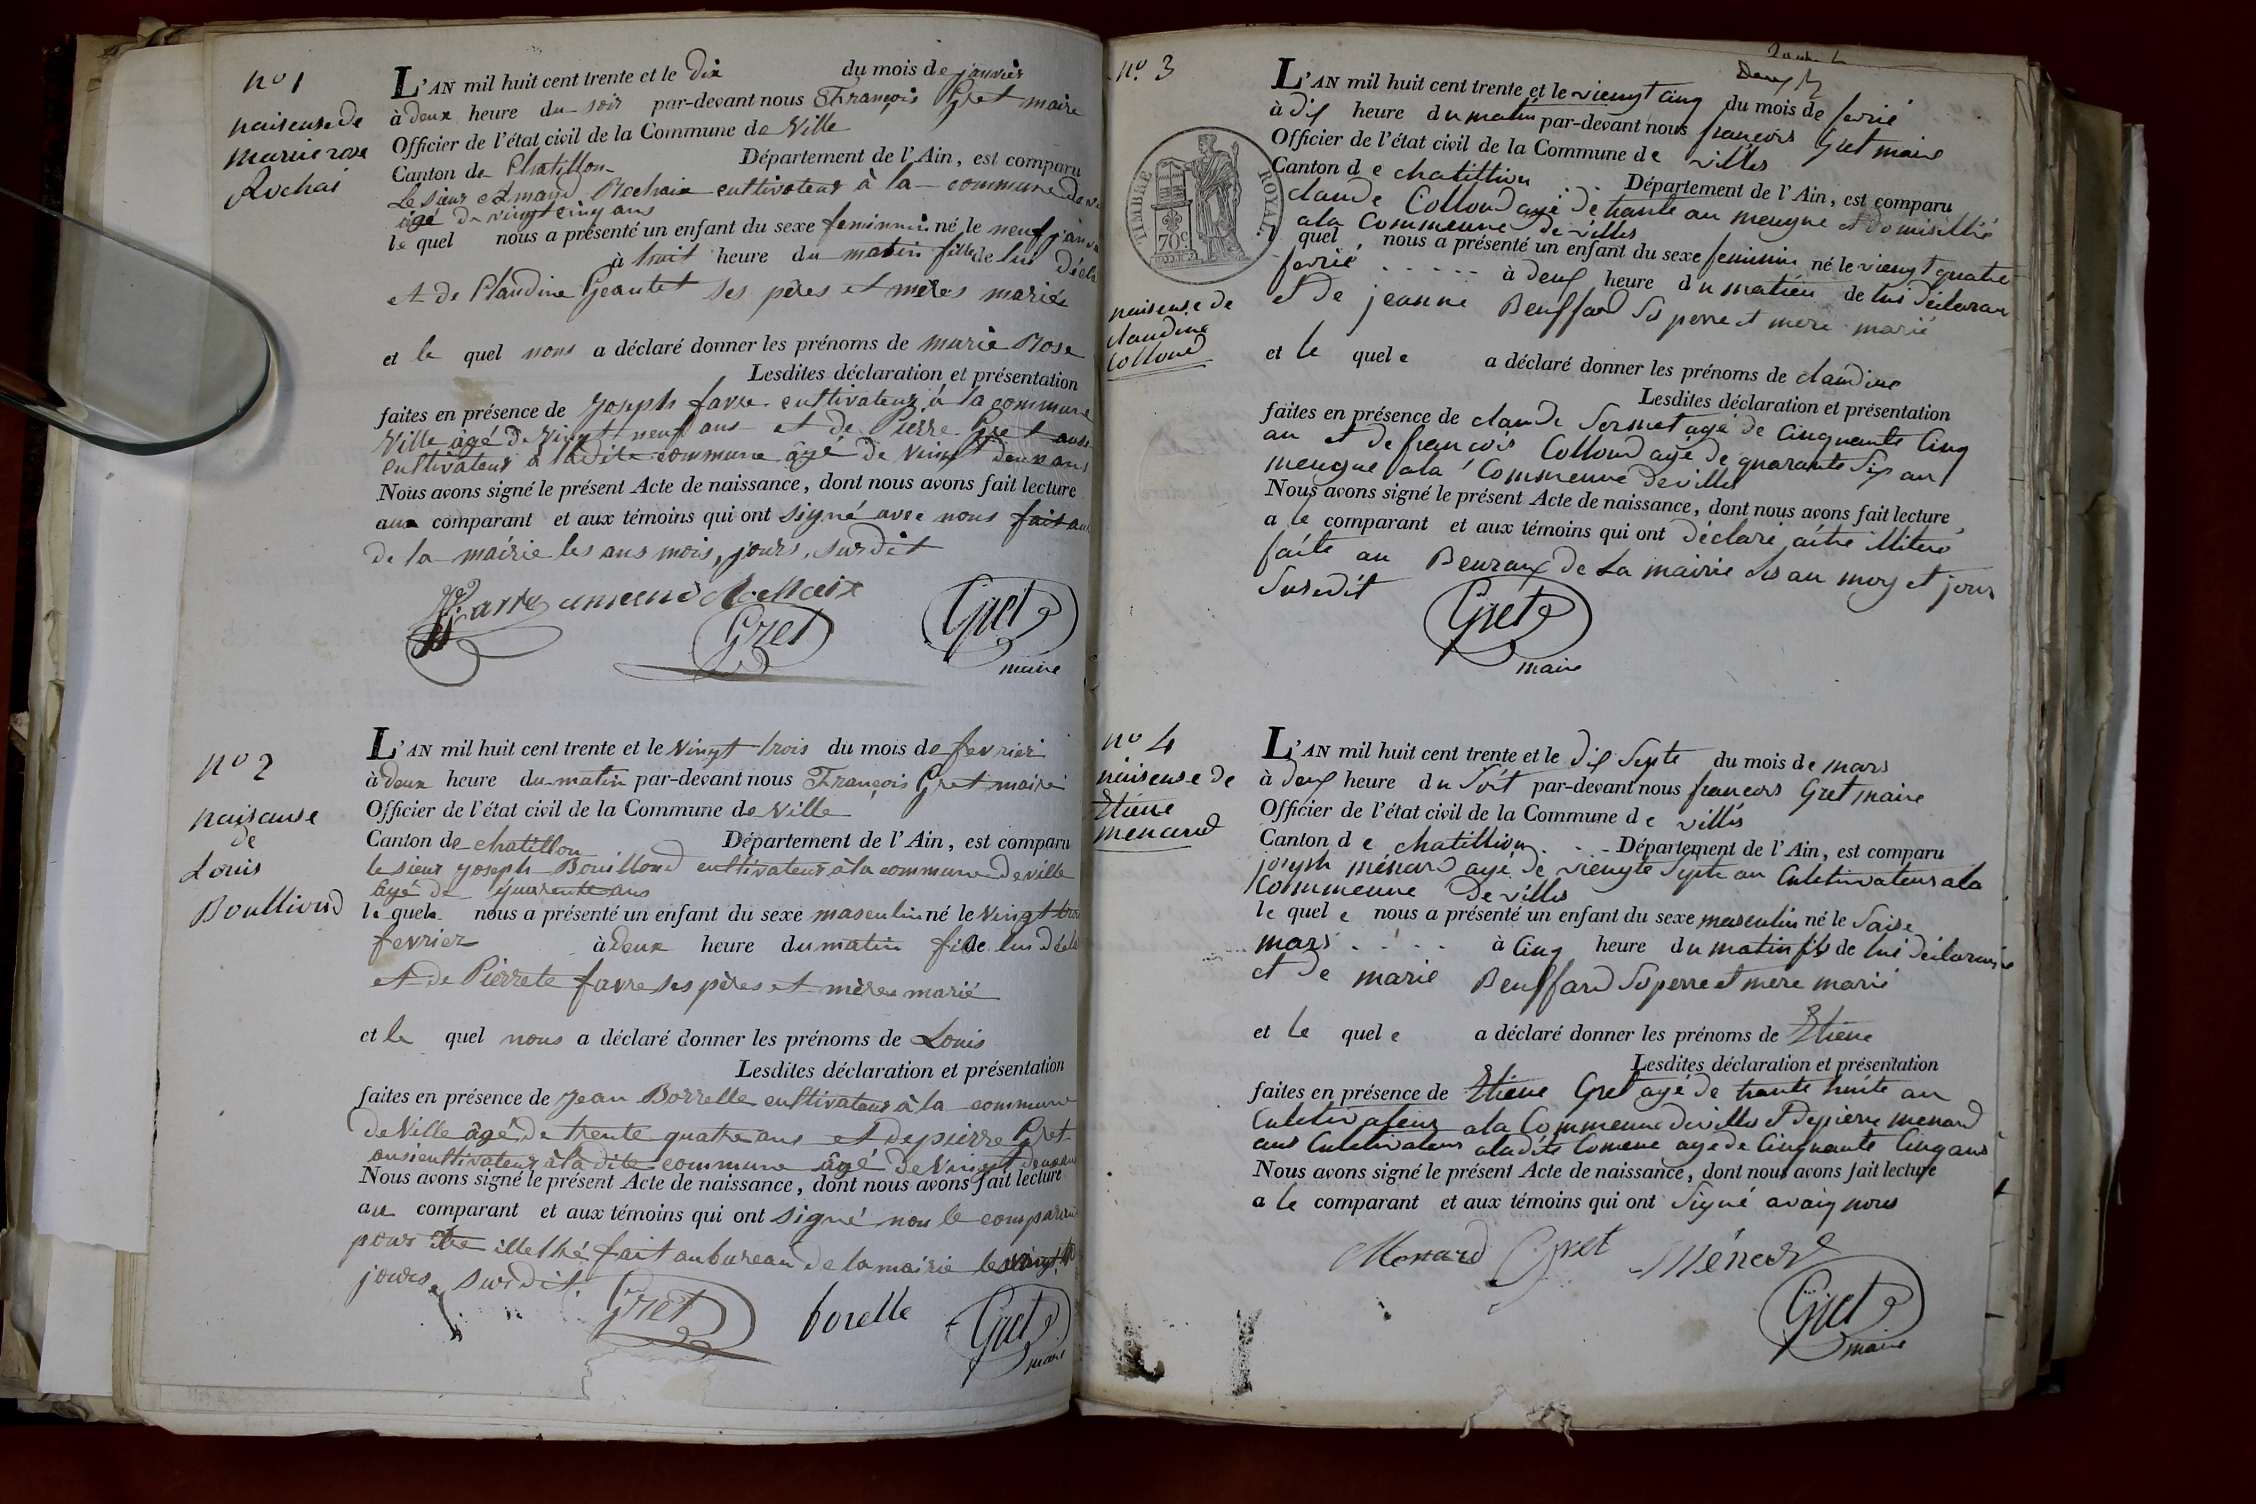 nº 1
naiseuse de
marrie rose
Rochai
L'AN mil huit cent trente et le dix du mois de janvier
à deux heure du soir par-devant nous François Gret maire
Officier de l'état civil de la Commune de Ville
Canton de Chatillon Département de l'Ain, est comparu
Le sieur Rochaix cultivateur à la commune de
âgé de vingt cinq ans
le quel nous a présenté un enfant du sexe feminin né le neuf
à huit heure du matin fille de lui
et de Claudine Geautet ses pères et mères mariés
et le quel nous a déclaré donner les prénoms de marie Rose
Lesdites déclaration et présentation
faites en présence de Joseph favre cultivateur à la commune
Ville âgé de vingt neuf ans et de Pierre Gret aussi
cultivateur à ladite commune âgé de vingt deux ans
Nous avons signé le présent Acte de naissance, dont nous avons fait lecture
aux comparant et aux témoins qui ont signé avec nous fait au
de la mairie les ans mois, jours, surdit
Gret
Gret
maire
nº 2
naisanse
de
Louis
Boullioud
L'AN mil huit cent trente et le vingt trois du mois de fevrier
à deux heure du matin par-devant nous François Gret maire
Officier de l'état civil de la Commune de Ville
Canton de chatillon Département de l'Ain, est comparu
le sieur joseph Bouilloud cultivateur à la commune de ville
âgé de quarente ans
le quele nous a présenté un enfant du sexe masculin né le vingt trois
fevrier à deux heure du matin de lui
et de Pierrete favre ses pères et mères marié
et le quel nous a déclaré donner les prénoms de Louis
Lesdites déclaration et présentation
faites en présence de Jean Borrelle cultivateur à la commune
de Ville âgé de trente quatre ans et de pierre Gret
ausi cultivateur à la dite commune âgé de vingt deux ans
Nous avons signé le présent Acte de naissance, dont nous avons fait lecture
au comparant et aux témoins qui ont signé non le comparant
pour être fait au bureau de la mairie les
jours surdit.
Gret
borelle
Gret
maire
nº 3
naiseuse de
claudine
Colloud
TIMBRE ROYAL.
70c
L'AN mil huit cent trente et le viengt cinq du mois de fevrié
à dix heure du matin par-devant nous françois Gret maire
Officier de l'état civil de la Commune de villes
Canton de chatillion Département de l'Ain, est comparu
claude Colloud agé de trante an meugne et domisillié
a la Commeune de villes
quel nous a présenté un enfant du sexe feminin né le viengt quatre
fevrié à deux heure du matien de lui déclaran
et de jeanne Beuffard ses perre et mere marié
et le quel e a déclaré donner les prénoms de claudine
Lesdites déclaration et présentation
faites en présence de claude Sermet agé de cinquante cinq
an et de françois Colloud agé de quarante six an
meugne a la Commeune de villes
Nous avons signé le présent Acte de naissance, dont nous avons fait lecture
a le comparant et aux témoins qui ont déclaré aitre illiteré
faite au Beuraux de La mairie les an moy et jour
Susedit
Gret
maire
nº 4
naiseuse de
Etiene
menard
L'AN mil huit cent trente et le dix septe du mois de mars
à deux heure du soit par-devant nous françois Gret maire
Officier de l'état civil de la Commune de villes
Canton de chatillion Département de l'Ain, est comparu
joseph ménard agé de viengte septe an Cultivateur a la
Commeune de villes
le quel e nous a présenté un enfant du sexe masculin né le saise
mars à cinq heure du matin fils de lui
et de marie Beuffard ses perre et mere marié
et le quel e a déclaré donner les prénoms de Etiene
Lesdites déclaration et présentation
faites en présence de Etiene Gret agé de trante huite an
Cultivateur a la Commeune de villes et de pierre menard
aus Cultivateur a la dite Comeune age de Cinquante Cinq ans
Nous avons signé le présent Acte de naissance, dont nous avons fait lecture
a le comparant et aux témoins qui ont signé avaiq nous
Menard Gret Ménard
Gret
maire